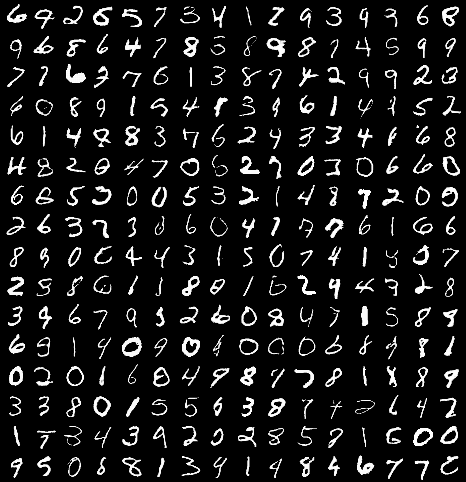 6 9 2 6 5 7 3 4 1 2 9 3 9 3 6 8
9 6 8 6 4 7 8 5 8 9 8 7 4 5 9 9
7 7 6 2 7 6 1 3 8 7 4 2 9 9 2 3
6 0 8 9 1 5 4 1 3 9 6 1 4 1 5 2
6 1 4 8 8 3 7 6 2 4 3 3 4 1 6 8
4 8 2 0 4 7 0 5 2 9 0 3 0 6 6 0
6 6 5 3 0 0 5 3 2 1 4 8 7 2 0 0
2 6 3 7 3 8 6 0 4 7 7 7 6 1 6 6
8 9 0 0 4 4 3 1 5 0 7 4 1 9 5 7
2 5 8 6 1 1 8 0 1 6 2 9 4 3 2 8
3 9 6 7 9 5 2 6 0 8 4 7 1 5 8 8
6 9 1 9 0 9 0 6 0 0 0 6 8 9 8 1
0 2 0 1 6 0 4 9 8 7 7 8 1 8 8 9
3 3 8 0 1 5 5 6 3 8 7 4 2 6 4 2
1 7 3 4 3 9 2 0 2 8 5 9 1 6 0 0
9 5 0 8 8 1 3 9 1 4 8 4 6 7 7 2